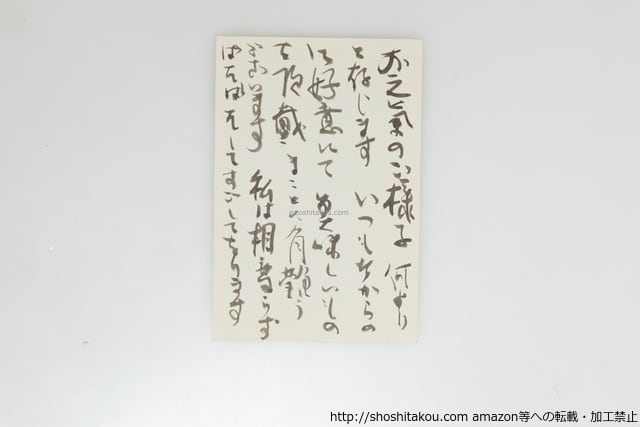 お元気のご様子 何より
と存じます いつもながらの
ご好意にて 美味しいもの
を頂戴 まことに有難う
ございます 私は相変らず
してすごしております
shoshitakou.com
http://shoshitakou.com amazon等への転載・加工禁止